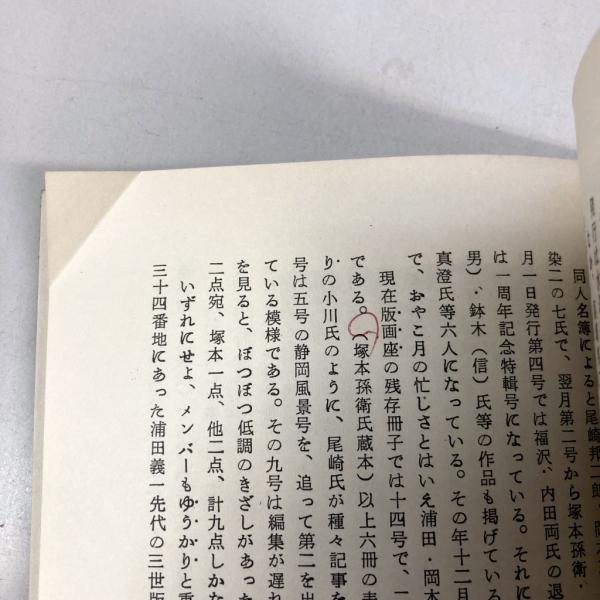 同人名簿によると尾崎邦二郎・
染二の七氏で、翌月第二号から塚本孫衛・
月一日発行第四号では福沢、内田両氏の退
は一周年記念特輯号になっている。それに
男）・鉢木（信）氏等の作品も掲げている
真澄氏等六人になっている。その年十二月
で、おやこ月の忙しさとはいえ浦田・岡本
現在版画座の残存冊子では十四号で、一
である。（塚本孫衛氏蔵本）以上六冊の表
りの小川氏のように、尾崎氏が種々記事を
号は五号の静岡風景号を、追って第二を出
ている模様である。その九号は編集が遅れ
を見ると、ぼつぼつ低調のきざしがあった
二点宛、塚本一点、他二点、計九点しかな
いずれにせよ、メンバーもゆうかりと重
三十四番地にあった浦田義一先代の三世版